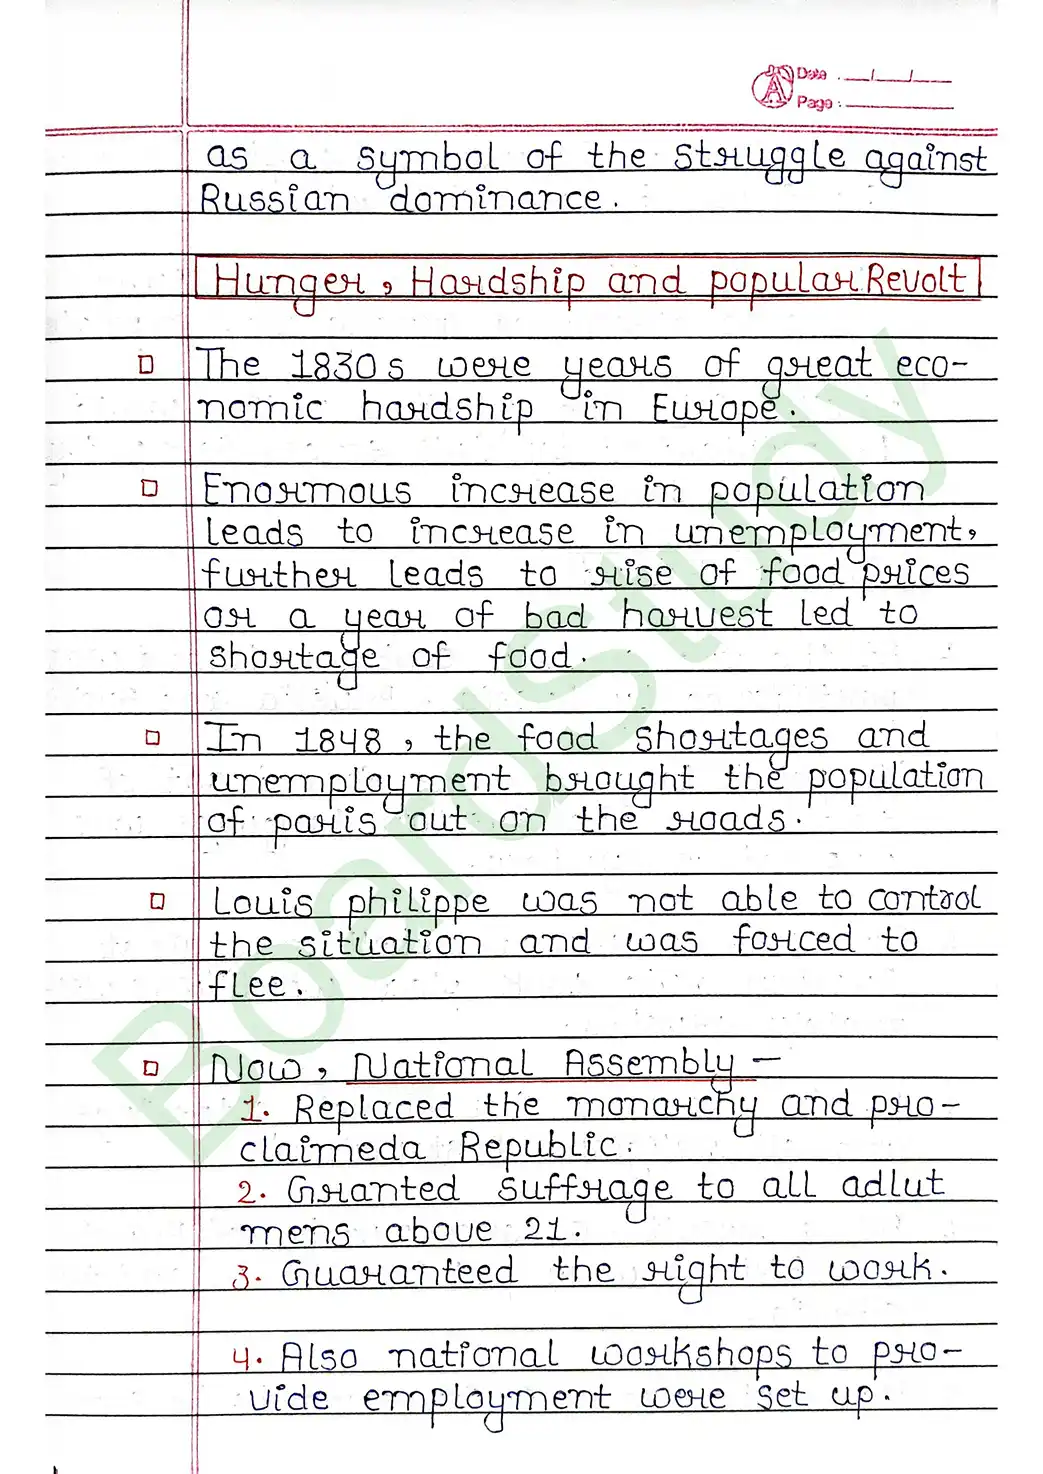 Date : __/__/__
Page : ________
as a symbol of the struggle against
Russian dominance.
Hunger, Hardship and popular Revolt
The 1830s were years of great eco-
nomic hardship in Europe.
Enormous increase in population
leads to increase in unemployment,
further leads to rise of food prices
or a year of bad harvest led to
shortage of food.
In 1848, the food shortages and
unemployment brought the population
of paris out on the roads.
Louis philippe was not able to control
the situation and was forced to
flee.
Now, National Assembly -
1. Replaced the monarchy and pro-
claimeda Republic.
2. Granted suffrage to all adlut
mens above 21.
3. Guaranteed the right to work.
4. Also national workshops to pro-
vide employment were set up.
BoardStudy